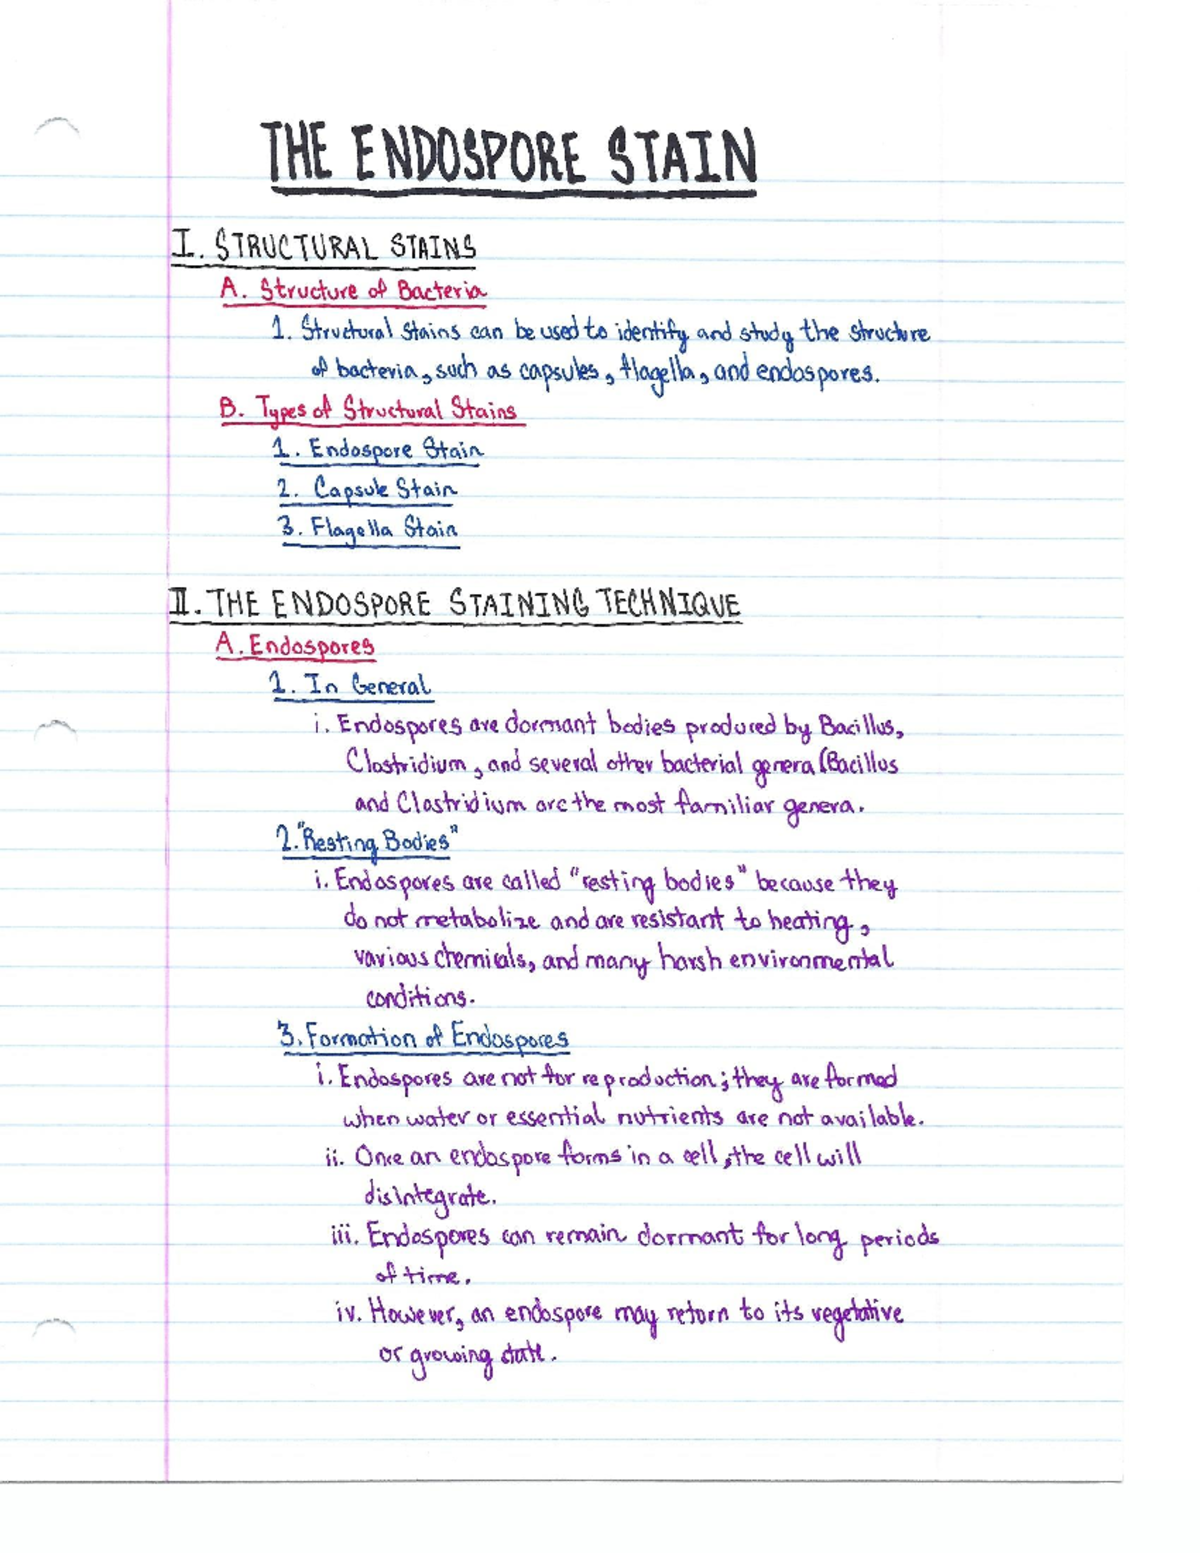 THE ENDOSPORE STAIN
I. STRUCTURAL STAINS
A. Structure of Bacteria
1. Structural stains can be used to identify and study the structure
of bacteria, such as capsules, flagella, and endospores.
B. Types of Structural Stains
1. Endospore Stain
2. Capsule Stain
3. Flagella Stain
II. THE ENDOSPORE STAINING TECHNIQUE
A. Endospores
1. In General
i. Endospores are dormant bodies produced by Bacillus,
Clostridium, and several other bacterial genera (Bacillus
and Clostridium are the most familiar genera.
2. "Resting Bodies"
i. Endospores are called "resting bodies" because they
do not metabolize and are resistant to heating,
various chemicals, and many harsh environmental
conditions.
3. Formation of Endospores
i. Endospores are not for reproduction; they are formed
when water or essential nutrients are not available.
ii. Once an endospore forms in a cell, the cell will
disintegrate.
iii. Endospores can remain dormant for long periods
of time.
iv. However, an endospore may return to its vegetative
or growing state.